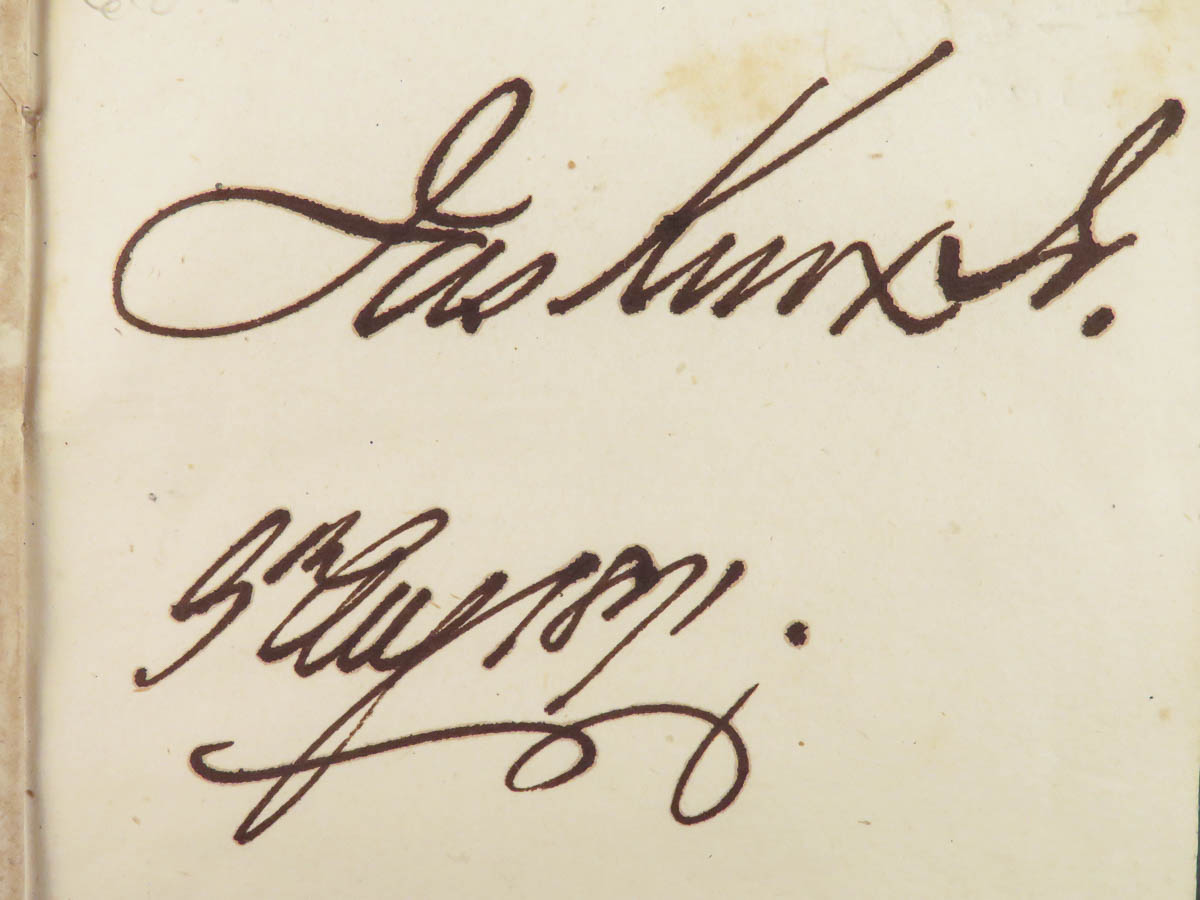 Jas Knox Sr.
9th Aug 1871.